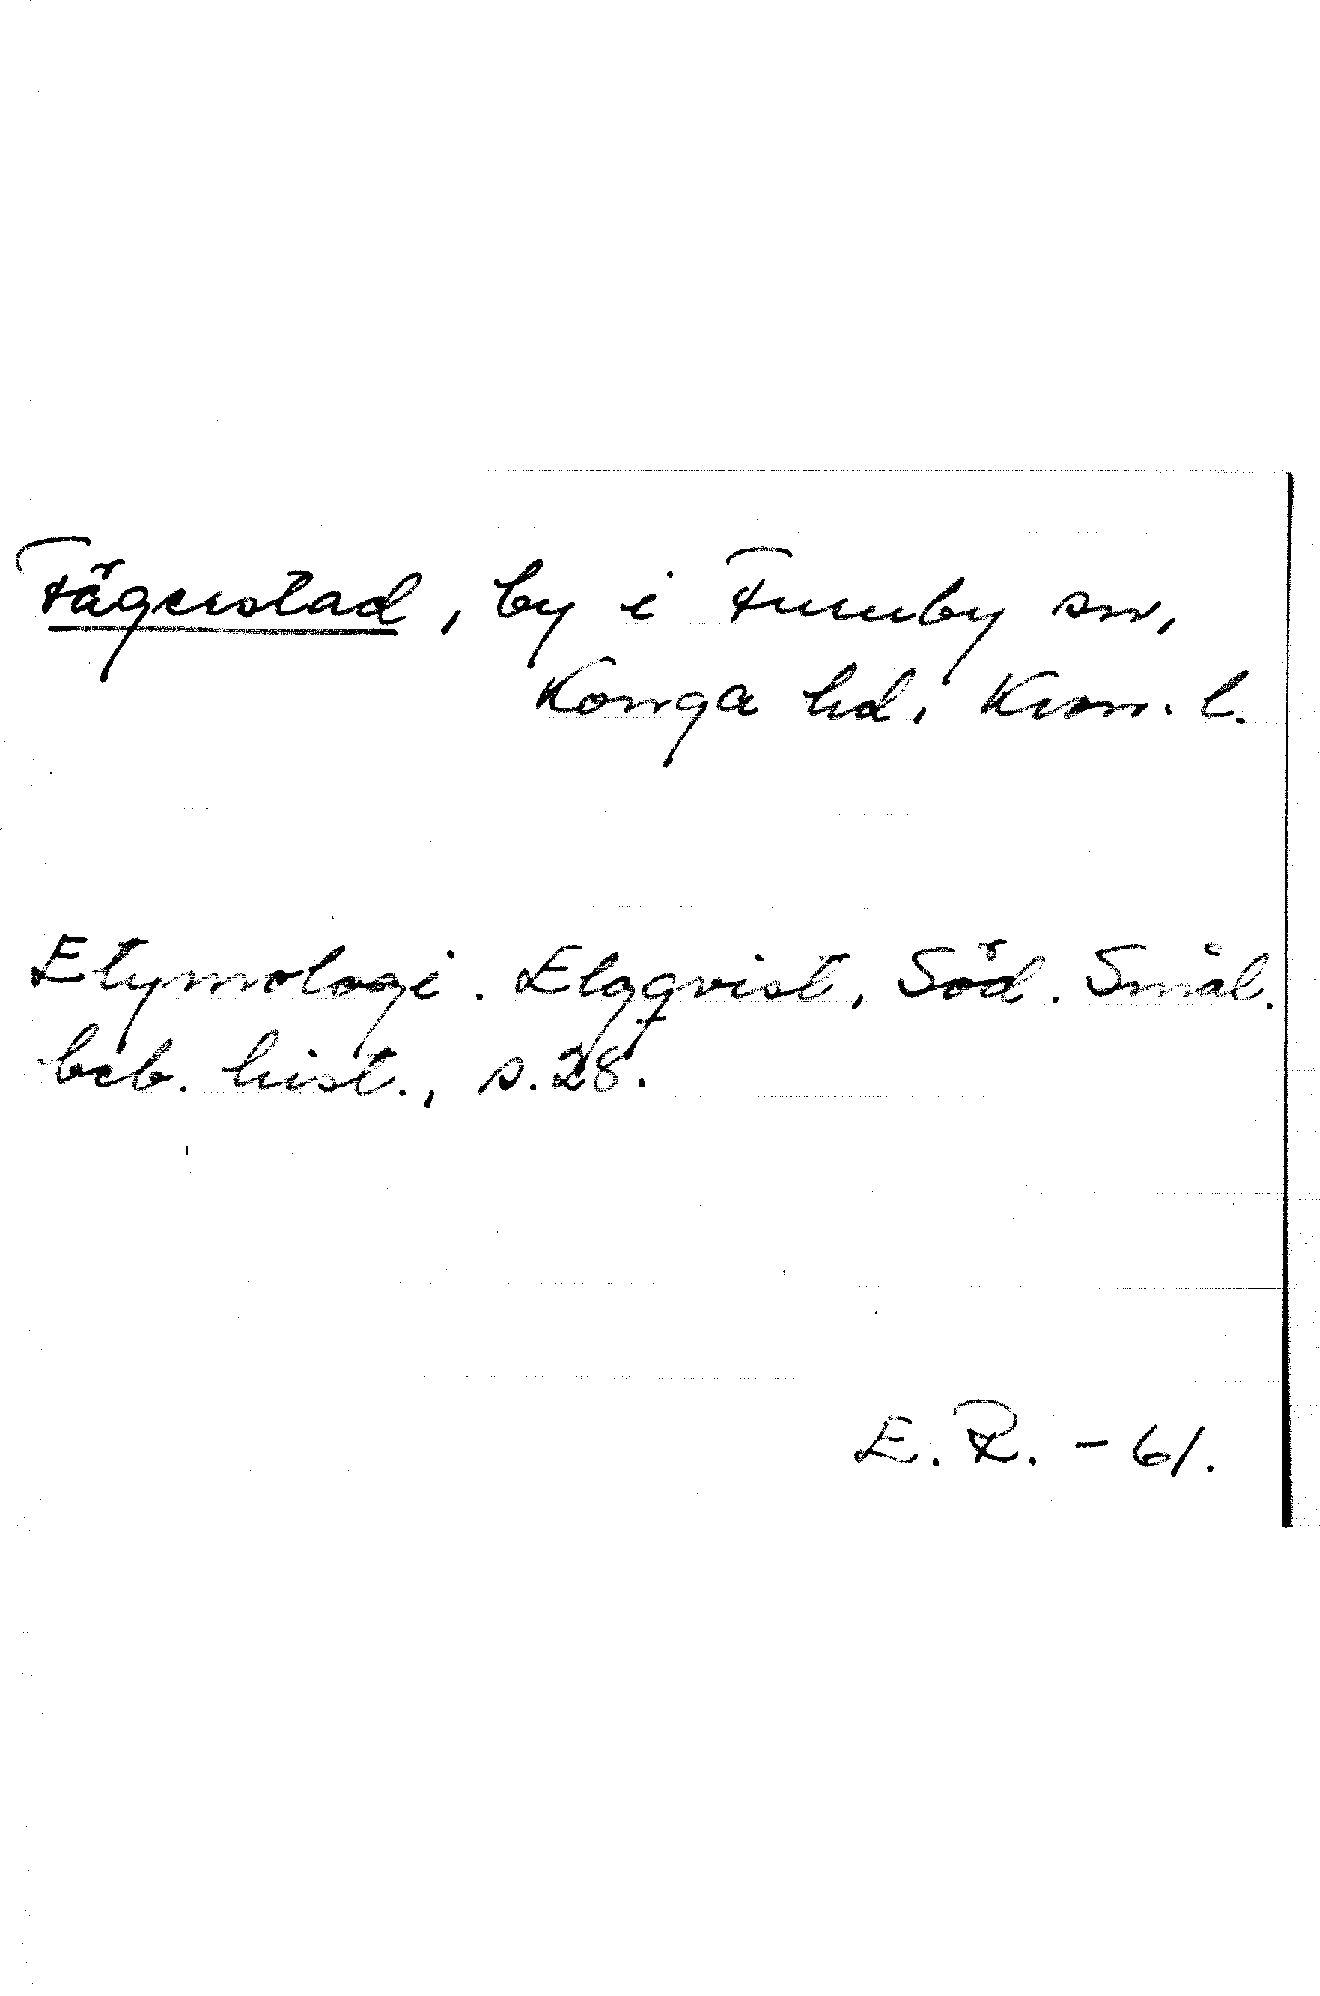 Fägerstad, by i Furuby sn,
Konga hd, Kron. l.
Etymologi. Elgqvist, Söd. Smål.
beb. hist., s. 28.
E. R. - 61.